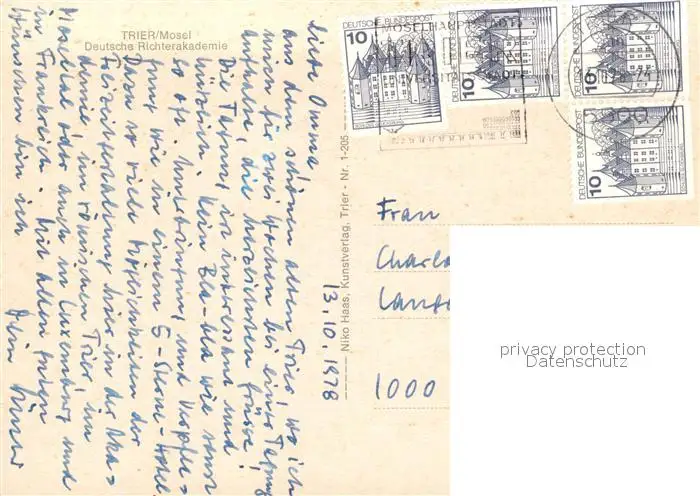 TRIER/Mosel
Deutsche Richterakademie
13.10.1978
Liebe Omma
aus dem schönen alten Trier, wo ich
mich für zwei Wochen bei einer Tagung
aufhalte die herzlichsten Grüsse!
Die Tagung ist interessant und
nützlich, kein Bla-bla wie sonst
so oft. Unterbringung und Verpfle-
gung wie in einem 5-Sterne-Hotel.
Dazu so viele Möglichkeiten der
Freizeitgestaltung hier in der Aka-
demie, im römischen Trier, im
Moseltal oder auch in Luxemburg und
in Frankreich. Mit allen guten
Wünschen bin ich
Dein
Niko Haas, Kunstverlag, Trier - Nr. 1-205
DEUTSCHE BUNDESPOST
10
DEUTSCHE BUNDESPOST
10
DEUTSCHE BUNDESPOST
10
DEUTSCHE BUNDESPOST
10
Frau
Charlo
Lange
1000
privacy protection
Datenschutz